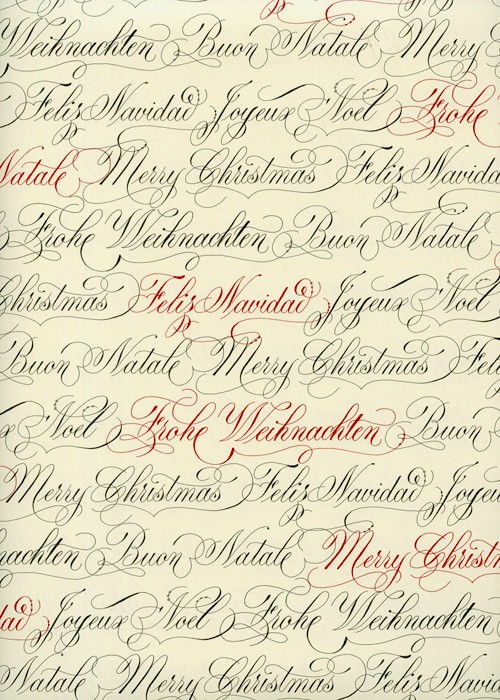 Weihnachten Buon Natale Merry
Feliz Navidad Joyeux Noel Frohe
Natale Merry Christmas Feliz Navida
Frohe Weihnachten Buon Natale
Christmas Feliz Navidad Joyeux Noel
Buon Natale Merry Christmas Feli
x Noel Frohe Weihnachten Buon
Merry Christmas Feliz Navidad Joyeu
nachten Buon Natale Merry Christm
dad Joyeux Noel Frohe Weihnachten
Natale Merry Christmas Feliz Navi